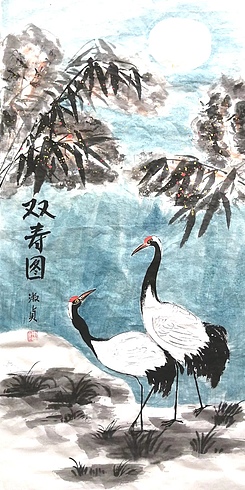 双寿图
淑贞